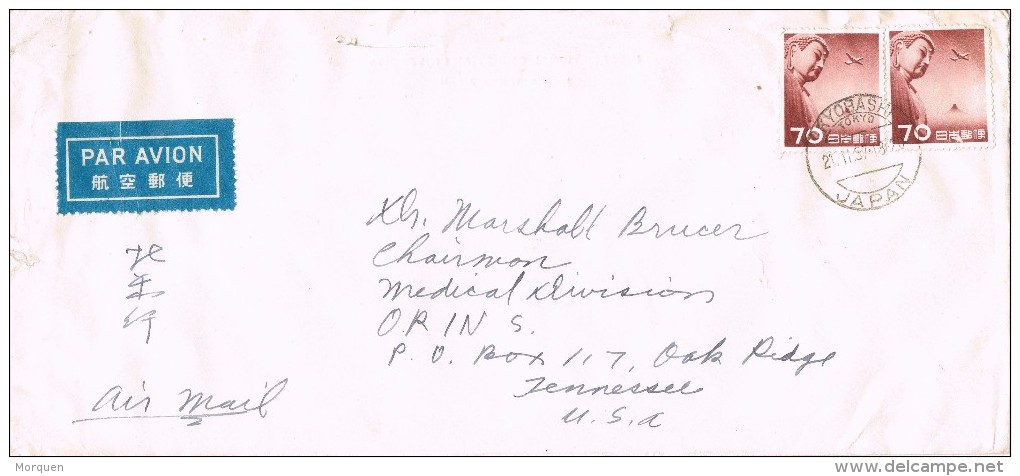 70 日本郵便
70 日本郵便
KYOBASHI
TOKYO
JAPAN
PAR AVION
航空郵便
Dr. Marshall Brucer
Chairman
Medical Division
O.R IN S.
P. O. Box 117, Oak Ridge
Tennessee
U.S.A
北
米
行
Air Mail
Morquen
www.delcampe.net